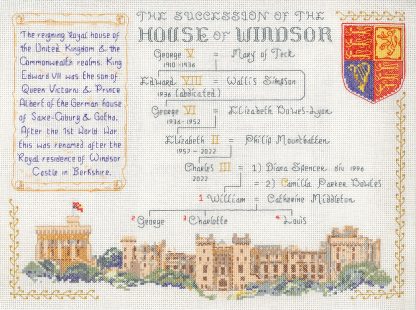 THE SUCCESSION OF THE
HOUSE OF WINDSOR
The reigning Royal house of
the United Kingdom & the
Commonwealth realms. King
Edward VII was the son of
Queen Victoria & Prince
Albert of the German house
of Saxe-Coburg & Gotha.
After the 1st World War
this was renamed after the
Royal residence of Windsor
Castle in Berkshire.
George V = Mary of Teck
1910-1936
Edward VIII = Wallis Simpson
1936 (abdicated)
George VI = Elizabeth Bowes-Lyon
1936-1952
Elizabeth II = Philip Mountbatten
1952-2022
Charles III = 1) Diana Spencer div 1996
2022
= 2) Camilla Parker Bowles
1 William = Catherine Middleton
2 George 3 Charlotte 4 Louis